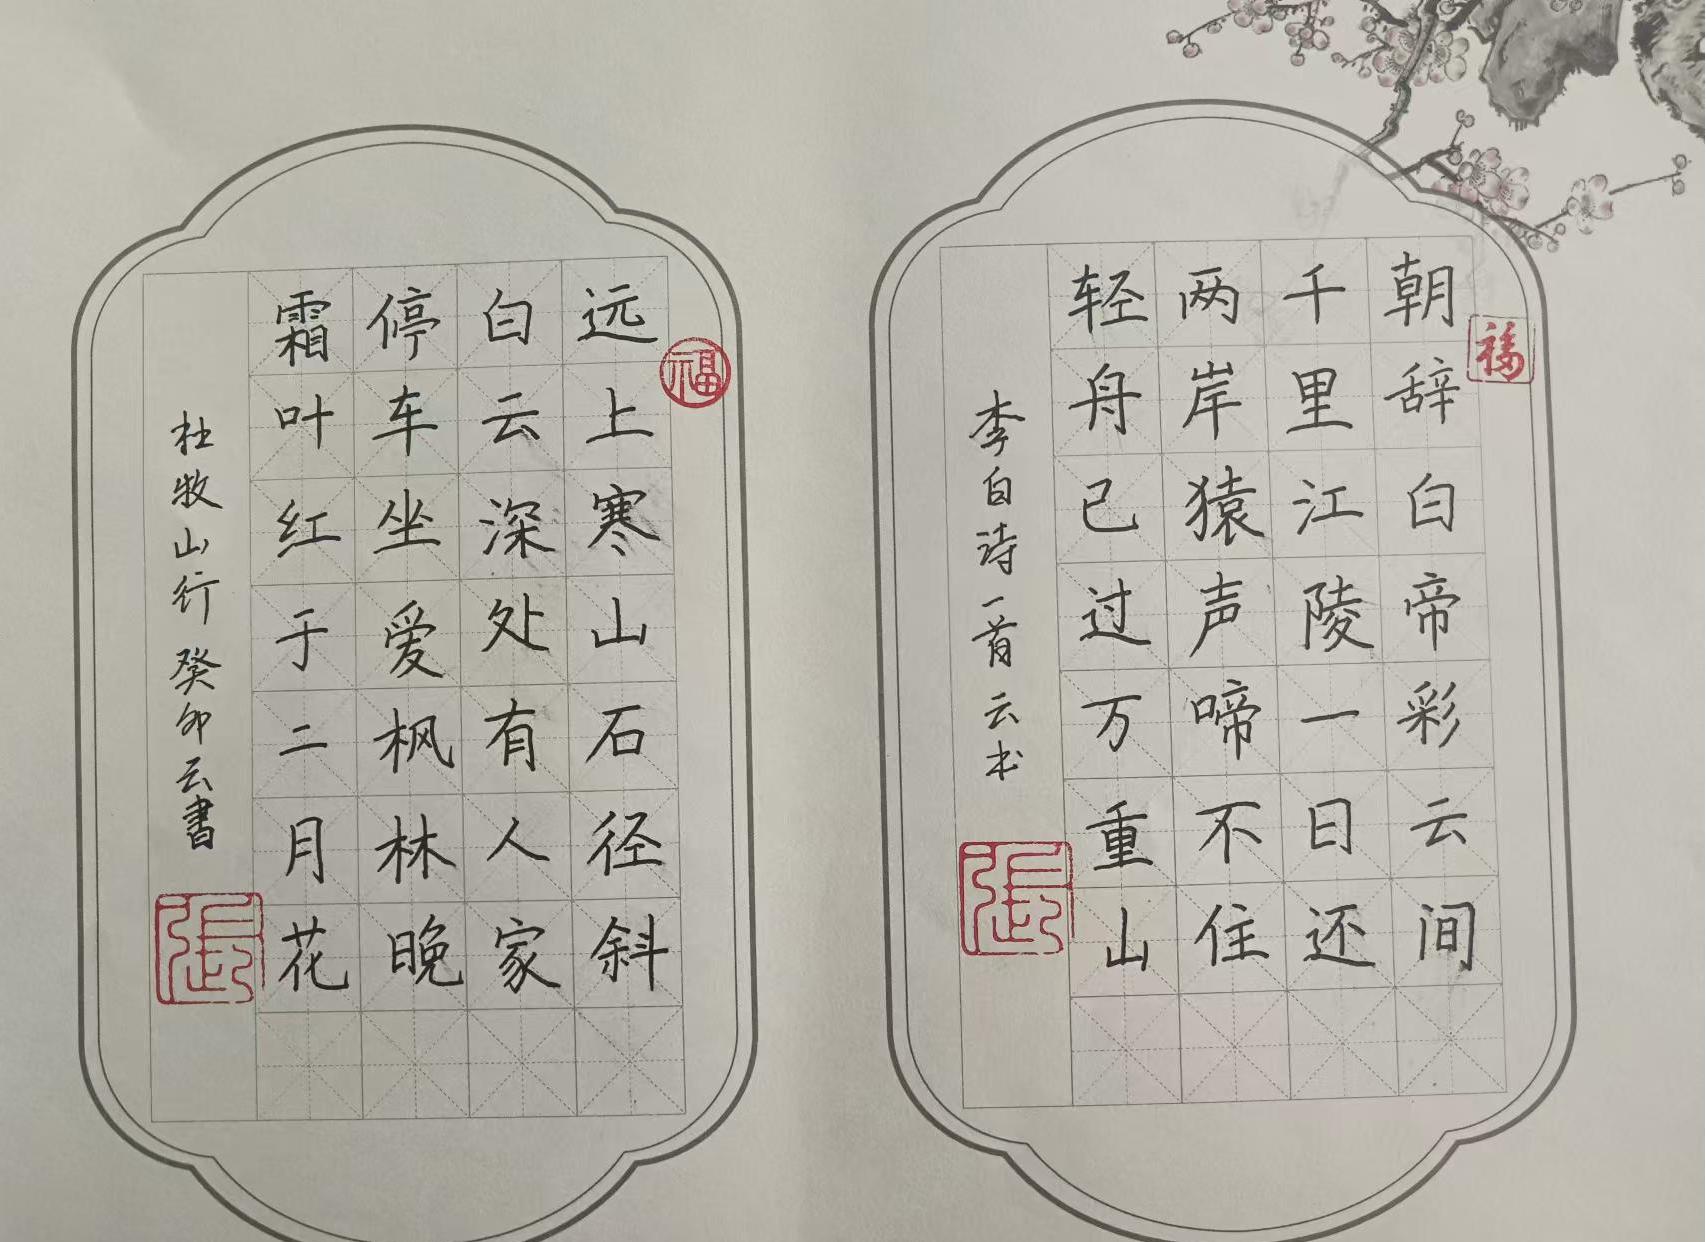 朝辞白帝彩云间
千里江陵一日还
两岸猿声啼不住
轻舟已过万重山
李白诗一首 云书
福
张
远上寒山石径斜
白云深处有人家
停车坐爱枫林晚
霜叶红于二月花
杜牧山行 癸卯云書
福
张